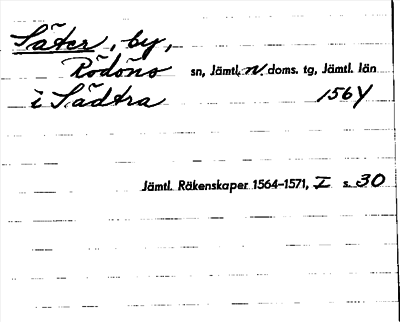 Säter, by,
Rödöns sn, Jämtl. N. doms. tg, Jämtl. län
i Sädtra 1564
Jämtl. Räkenskaper 1564-1571, I s. 30